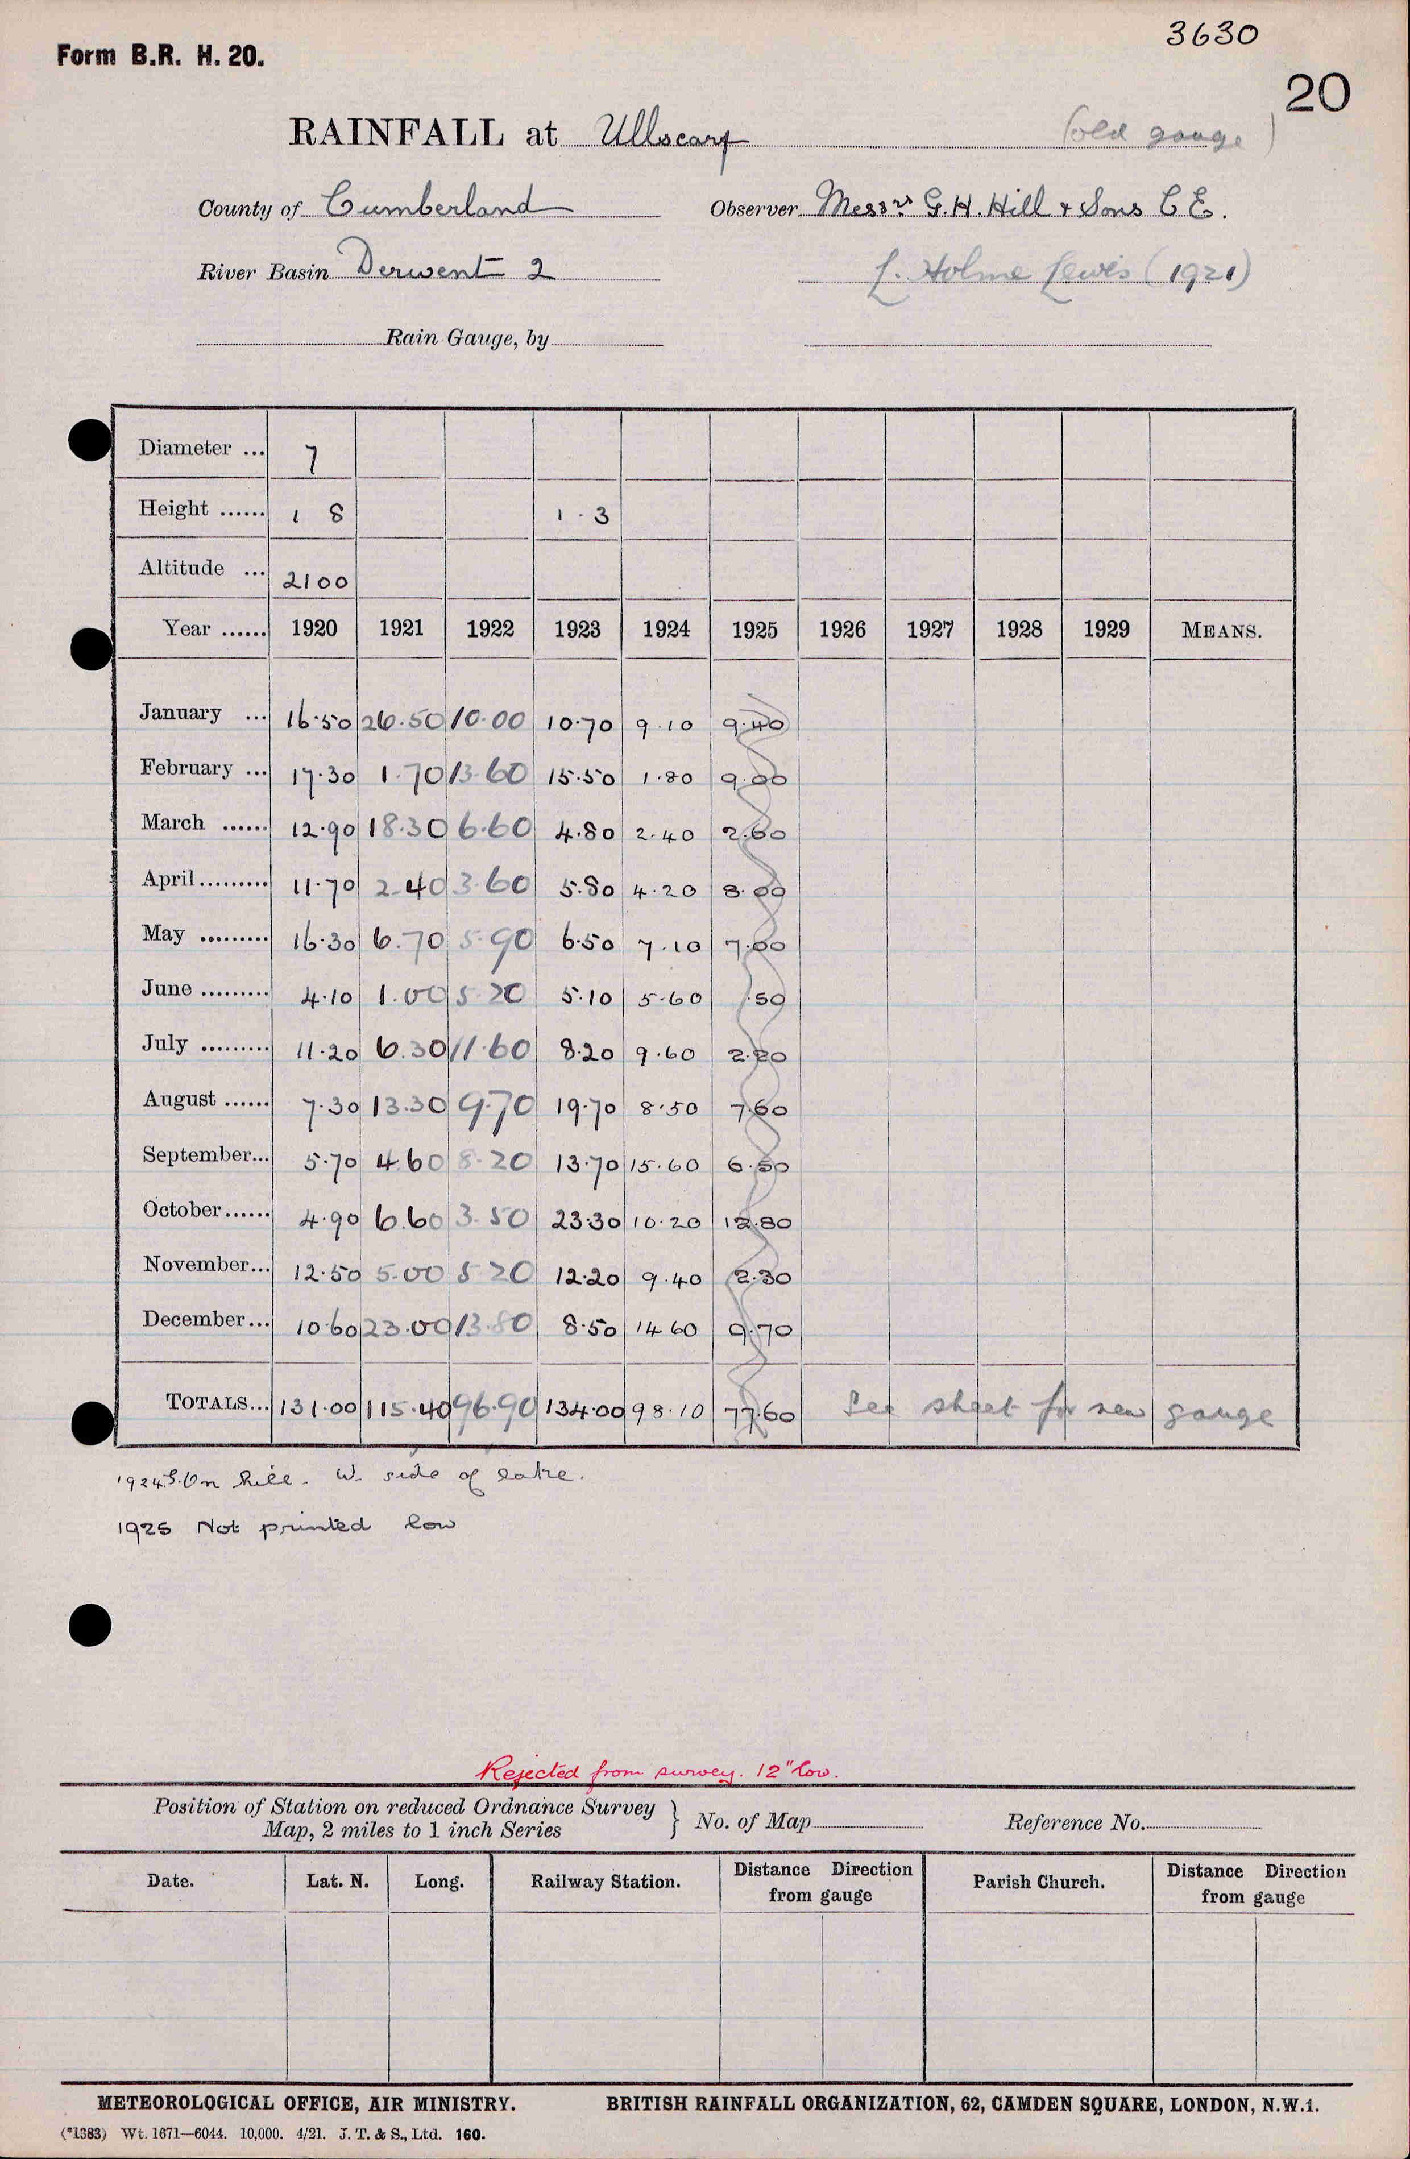 3630
Form B.R. H. 20.
20
RAINFALL at Ullscarf (old gauge)
County of Cumberland Observer Messrs G. H. Hill & Sons C E.
River Basin Derwent 2 L. Holme Lewis (1921)
Rain Gauge, by
Diameter ... 7
Height ...... 1 8 1 - 3
Altitude ... 2100
Year ...... 1920 1921 1922 1923 1924 1925 1926 1927 1928 1929 MEANS.
January ... 16.50 26.50 10.00 10.70 9.10 9.40
February ... 17.30 1.70 13.60 15.50 1.80 9.00
March ...... 12.90 18.30 6.60 4.80 2.40 2.60
April ......... 11.70 2.40 3.60 5.80 4.20 8.00
May ......... 16.30 6.70 5.90 6.50 7.10 7.00
June ......... 4.10 1.00 5.20 5.10 5.60 .50
July ......... 11.20 6.30 11.60 8.20 9.60 2.20
August ...... 7.30 13.30 9.70 19.70 8.50 7.60
September... 5.70 4.60 8.20 13.70 15.60 6.50
October...... 4.90 6.60 3.50 23.30 10.20 12.80
November... 12.50 5.00 5.20 12.20 9.40 2.30
December... 10.60 23.00 13.80 8.50 14.60 9.70
TOTALS... 131.00 115.40 96.90 134.00 98.10 77.60 See sheet for new gauge
1924 On hill. W. side of lake.
1925 Not printed low
Rejected from survey. 12" low.
Position of Station on reduced Ordnance Survey Map, 2 miles to 1 inch Series } No. of Map Reference No.
Date. Lat. N. Long. Railway Station. Distance Direction from gauge Parish Church. Distance Direction from gauge
METEOROLOGICAL OFFICE, AIR MINISTRY. BRITISH RAINFALL ORGANIZATION, 62, CAMDEN SQUARE, LONDON, N.W.1.
(*1383) Wt. 1671—6044. 10,000. 4/21. J. T. & S., Ltd. 160.